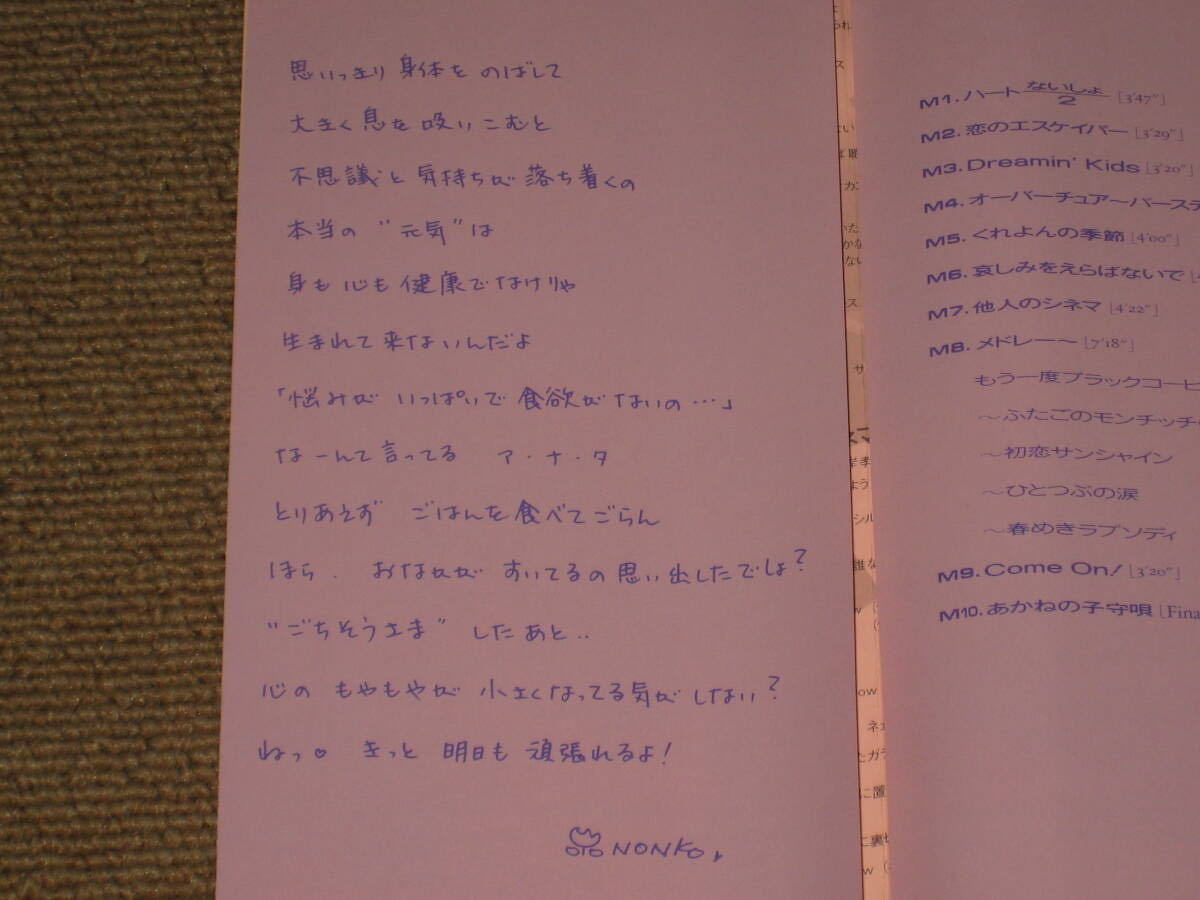 思いっきり 身体を のばして
大きく 息を 吸いこむと
不思議と 気持ちが 落ち着くの
本当の "元気" は
身も心も健康でなけりゃ
生まれて来ないんだよ
「悩みが いっぱいで 食欲が ないの…」
なーんて言ってる ア・ナ・タ
とりあえず ごはんを食べてごらん
ほら. おなかが すいてるの思い出したでしょ?
"ごちそうさま" したあと..
心の もやもやが 小さくなってる気が しない?
ねっ♡ きっと 明日も 頑張れるよ!
NONKO
M1.ハートないしょ/2 [3'47"]
M2.恋のエスケイパー [3'29"]
M3.Dreamin' Kids [3'20"]
M4.オーバーチュア〜バースデ
M5.くれよんの季節 [4'00"]
M6.哀しみをえらばないで
M7.他人のシネマ [4'22"]
M8.メドレー〜 [7'18"]
もう一度ブラックコーヒ
〜ふたごのモンチッチ
〜初恋サンシャイン
〜ひとつぶの涙
〜春めきラプソディ
M9.Come On! [3'20"]
M10.あかねの子守唄 [Fina